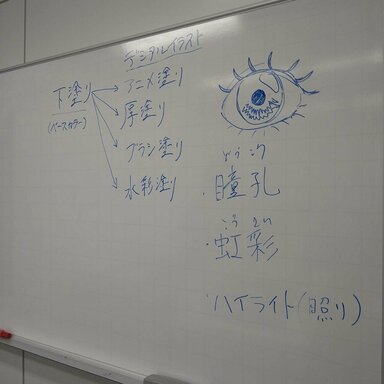 デジタルイラスト
下塗り
(ベースカラー)
アニメ塗り
厚塗り
ブラシ塗り
水彩塗り
どうこう
・瞳孔
こうさい
・虹彩
ハイライト(照り)